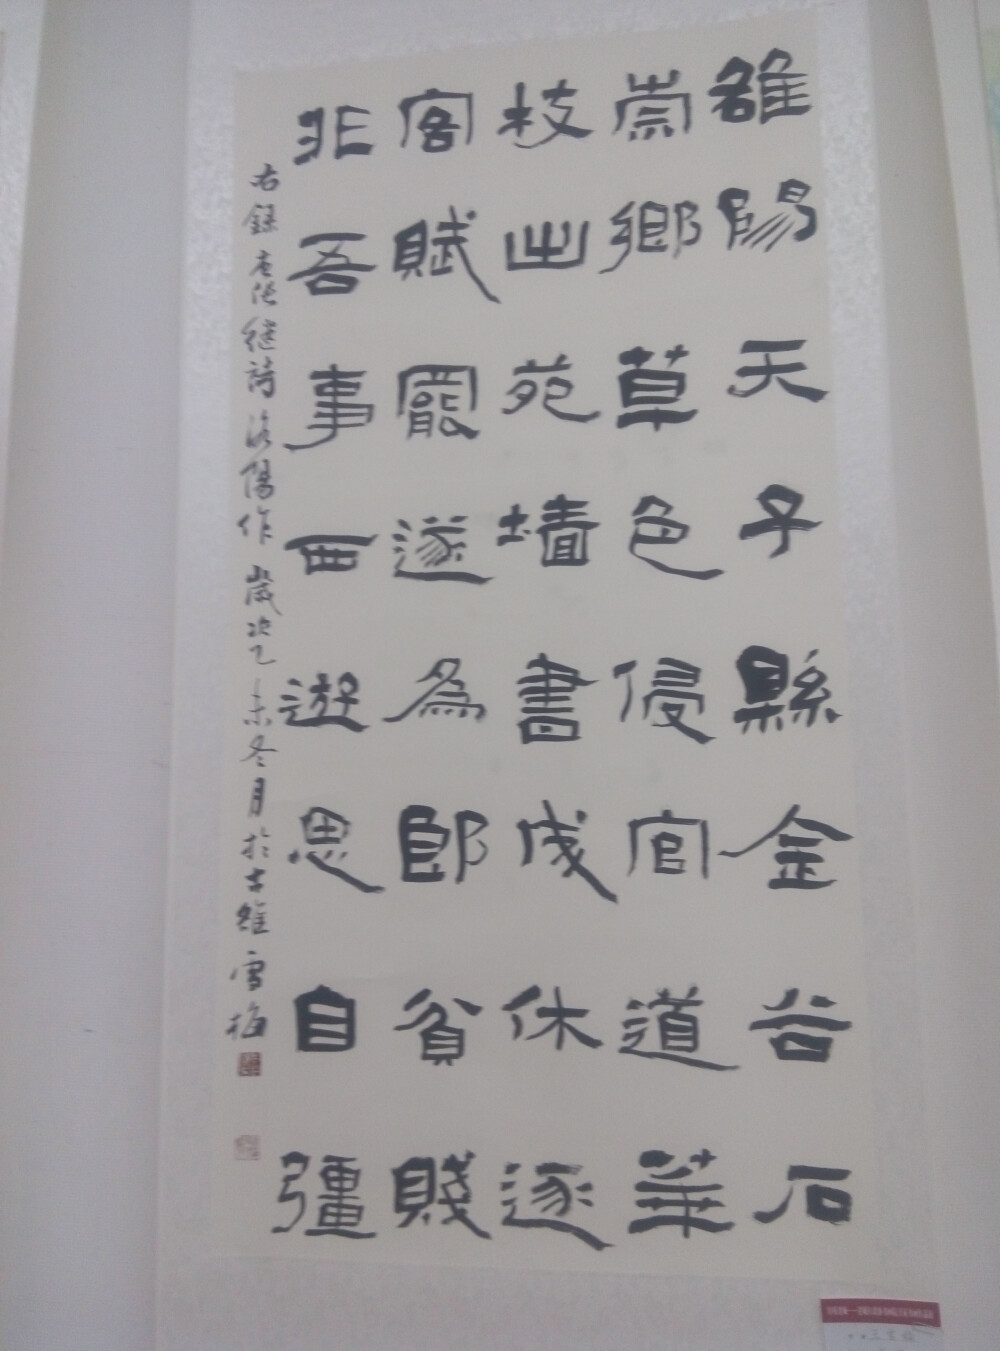 雒陽天子縣金谷石
崇鄉草色侵官道華
枝出苑墻書成休逐
客賦罷遂為郎貧賤
非吾事西遊思自彊
右錄唐張繼詩洛陽作 歲次乙未冬月於古雒雪梅